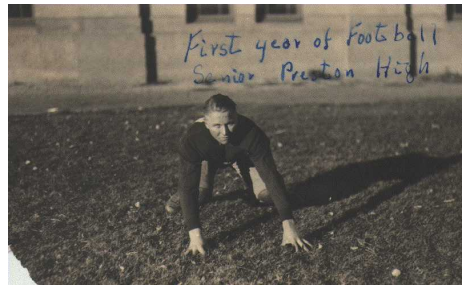 First year of Football
Senior Preston High